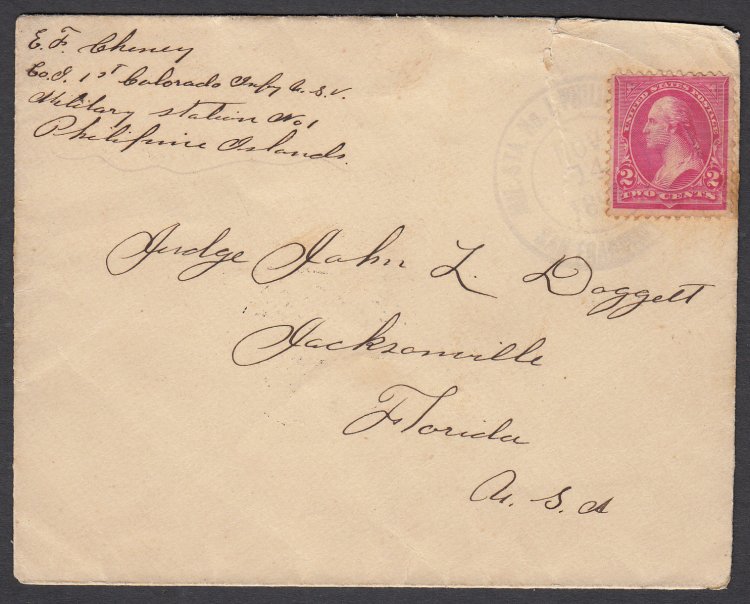 E. F. Cheney
Co. I. 1st Colorado Infy U.S.V.
Military Station No 1
Philipine Islands.
UNITED STATES POSTAGE
2 2
TWO CENTS
Judge John L. Doggett
Jacksonville
Florida
U. S. A